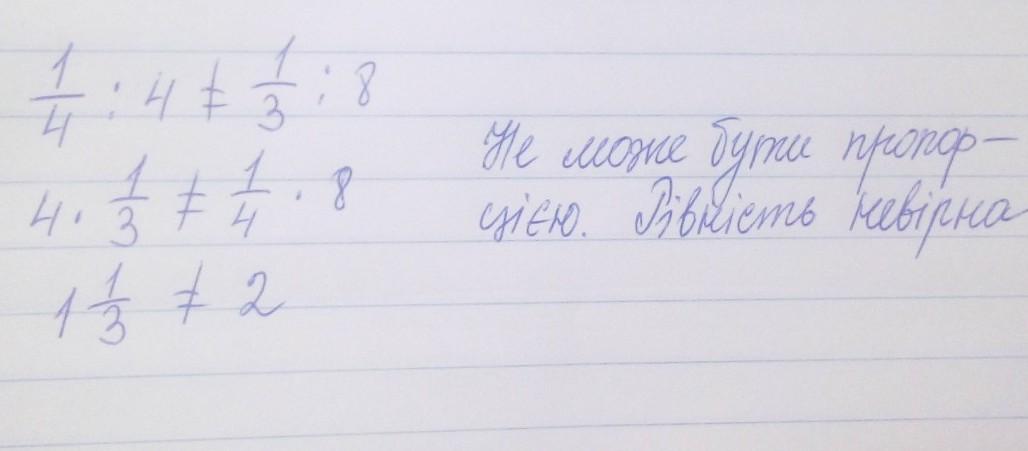 1/4 : 4 ≠ 1/3 : 8
4 · 1/3 ≠ 1/4 · 8
1 1/3 ≠ 2
Не може бути пропор-
цією. Рівність невірна